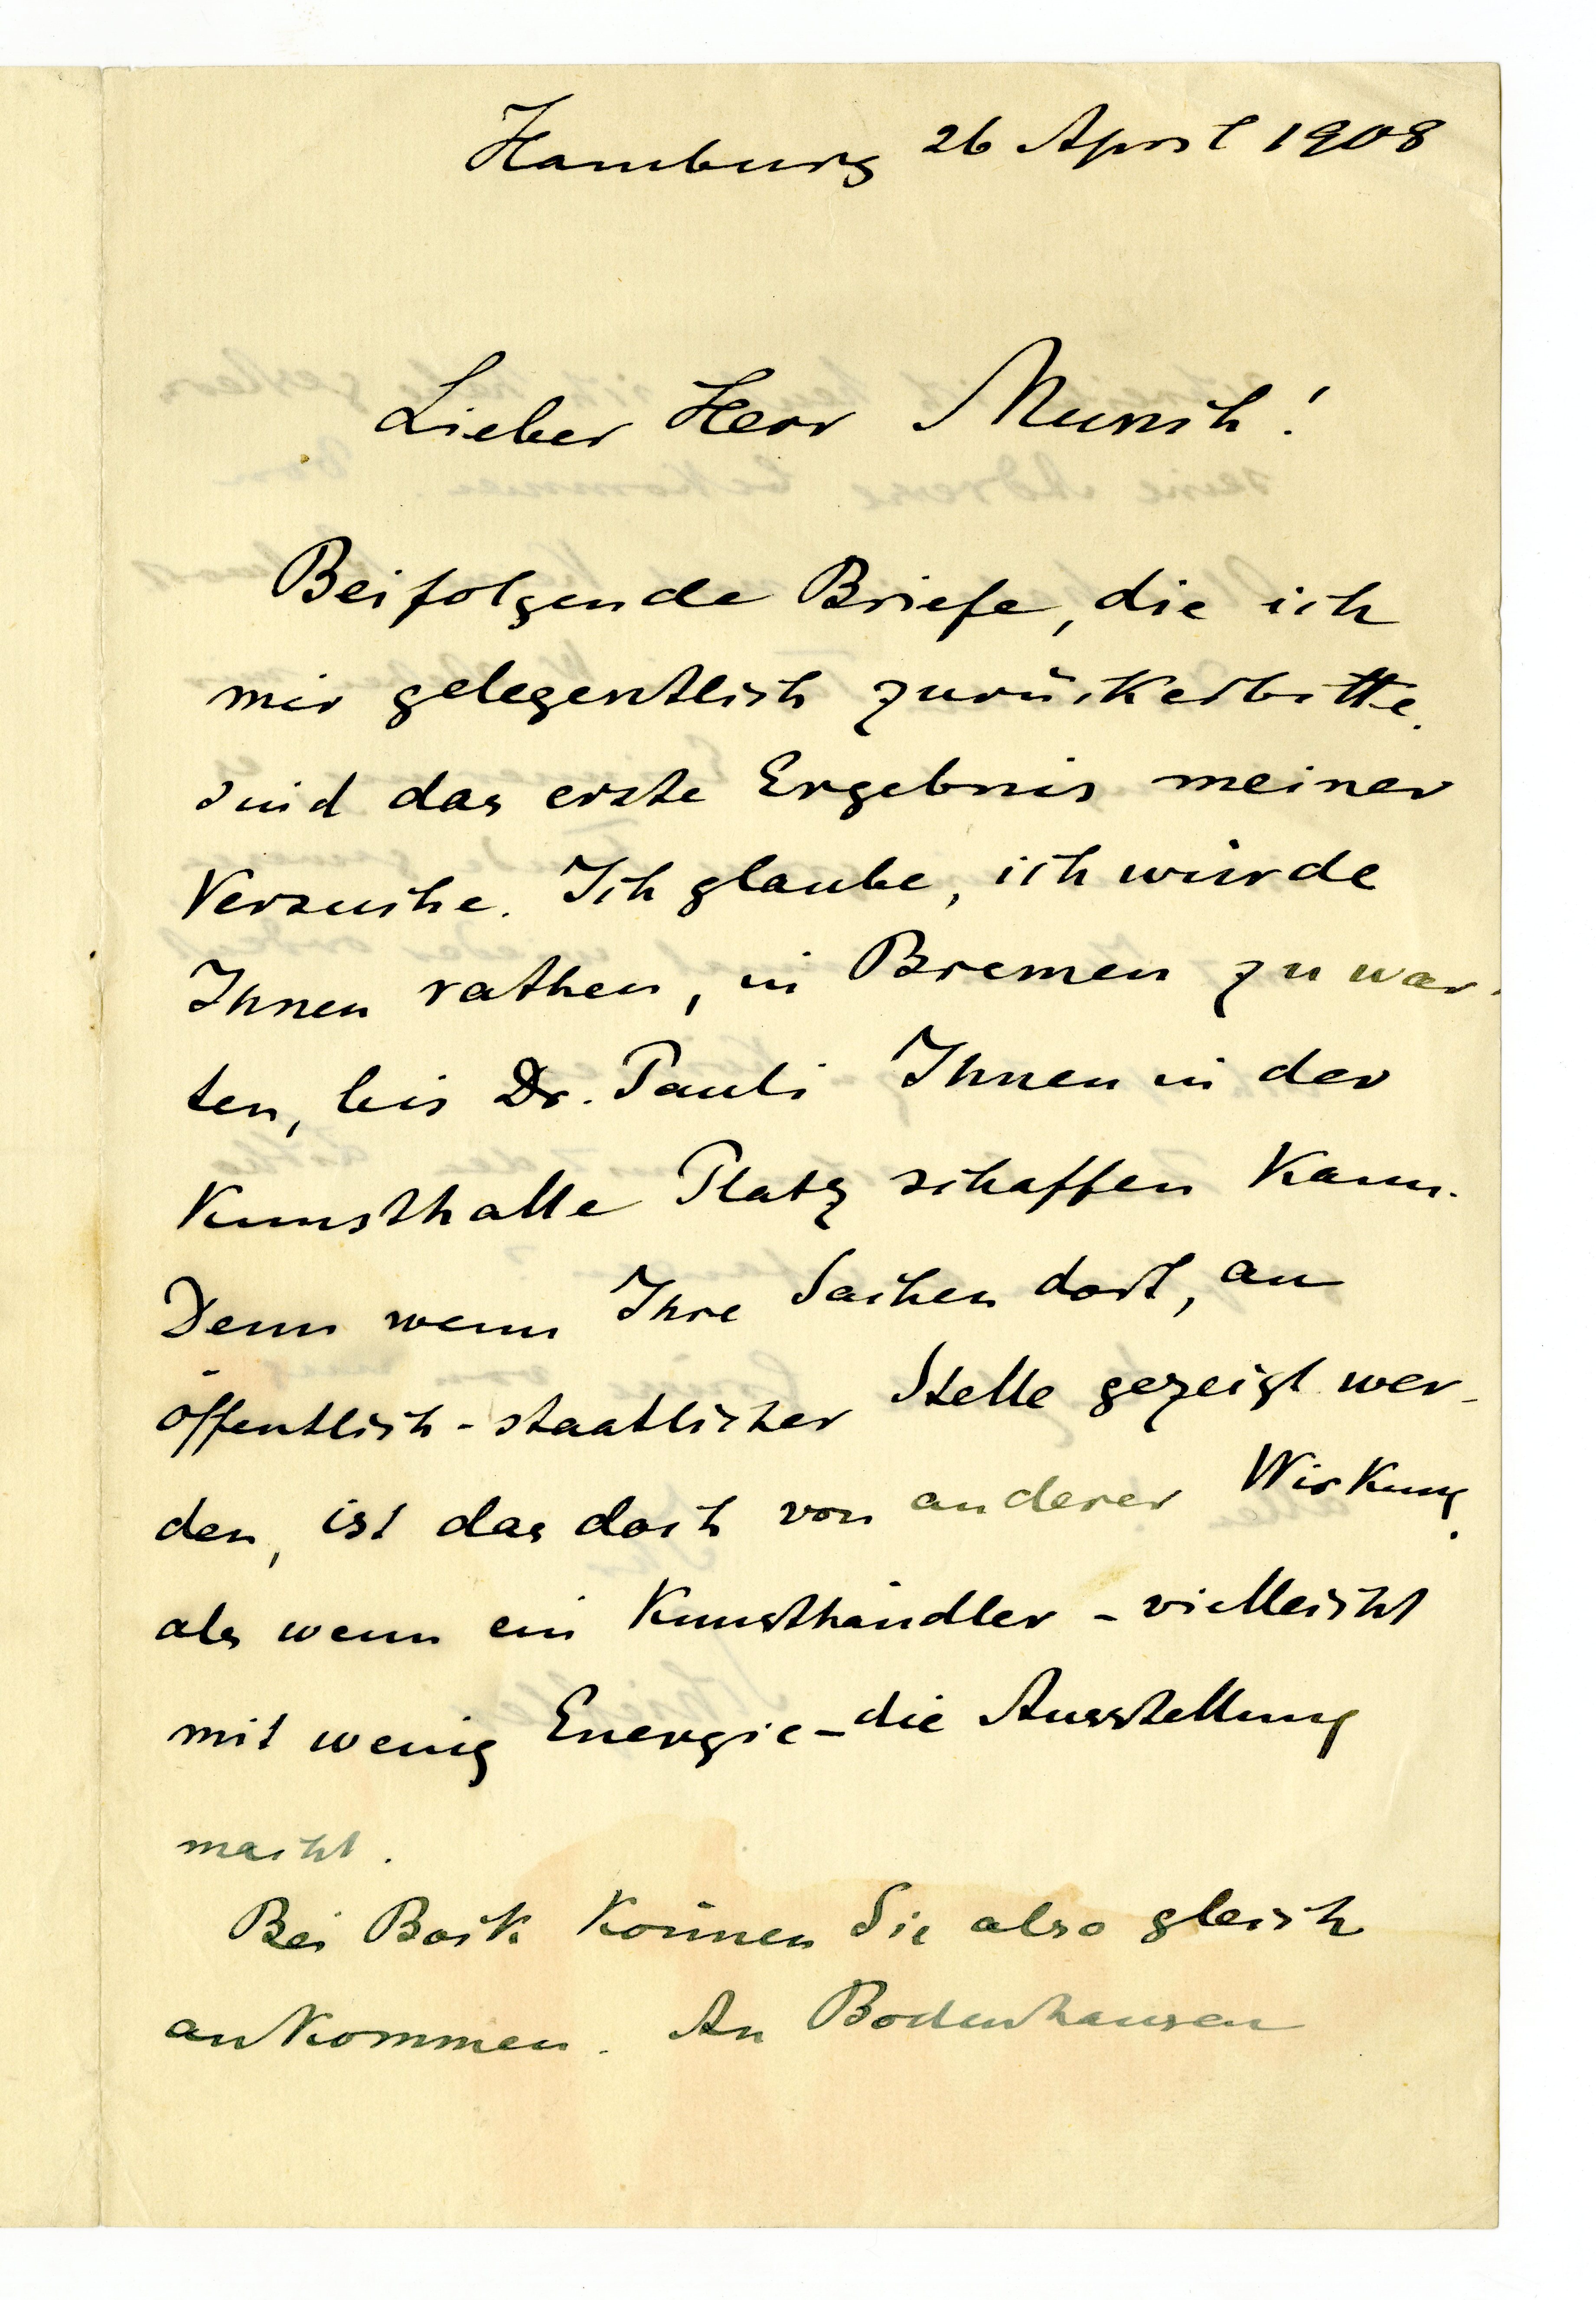 Hamburg 26 April 1908
Lieber Herr Munch!
Beifolgende Briefe, die ich
mir gelegentlich zurückerbitte,
sind das erste Ergebnis meiner
Versuche. Ich glaube, ich würde
Ihnen rathen, in Bremen zu war-
ten, bis Dr. Pauli Ihnen in der
Kunsthalle Platz schaffen kann.
Denn wenn Ihre Sachen dort, an
öffentlich-staatlicher Stelle gezeigt wer-
den, ist das doch von anderer Wirkung,
als wenn ein Kunsthändler - vielleicht
mit wenig Energie - die Ausstellung
macht.
Bei Bock können Sie also gleich
ankommen. An Bodenhausen